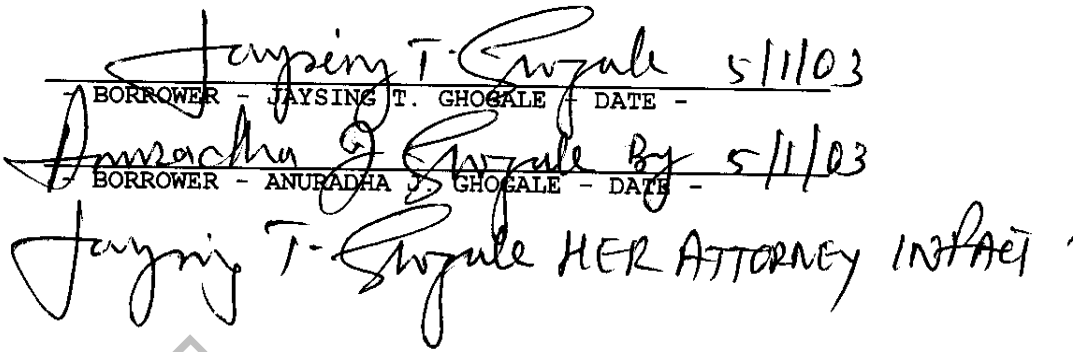 Jaysing T. Ghogale 5/1/03
- BORROWER - JAYSING T. GHOGALE - DATE -
Anuradha J Ghogale By 5/1/03
- BORROWER - ANURADHA J. GHOGALE - DATE -
Jaysing T. Ghogale HER ATTORNEY IN FACT